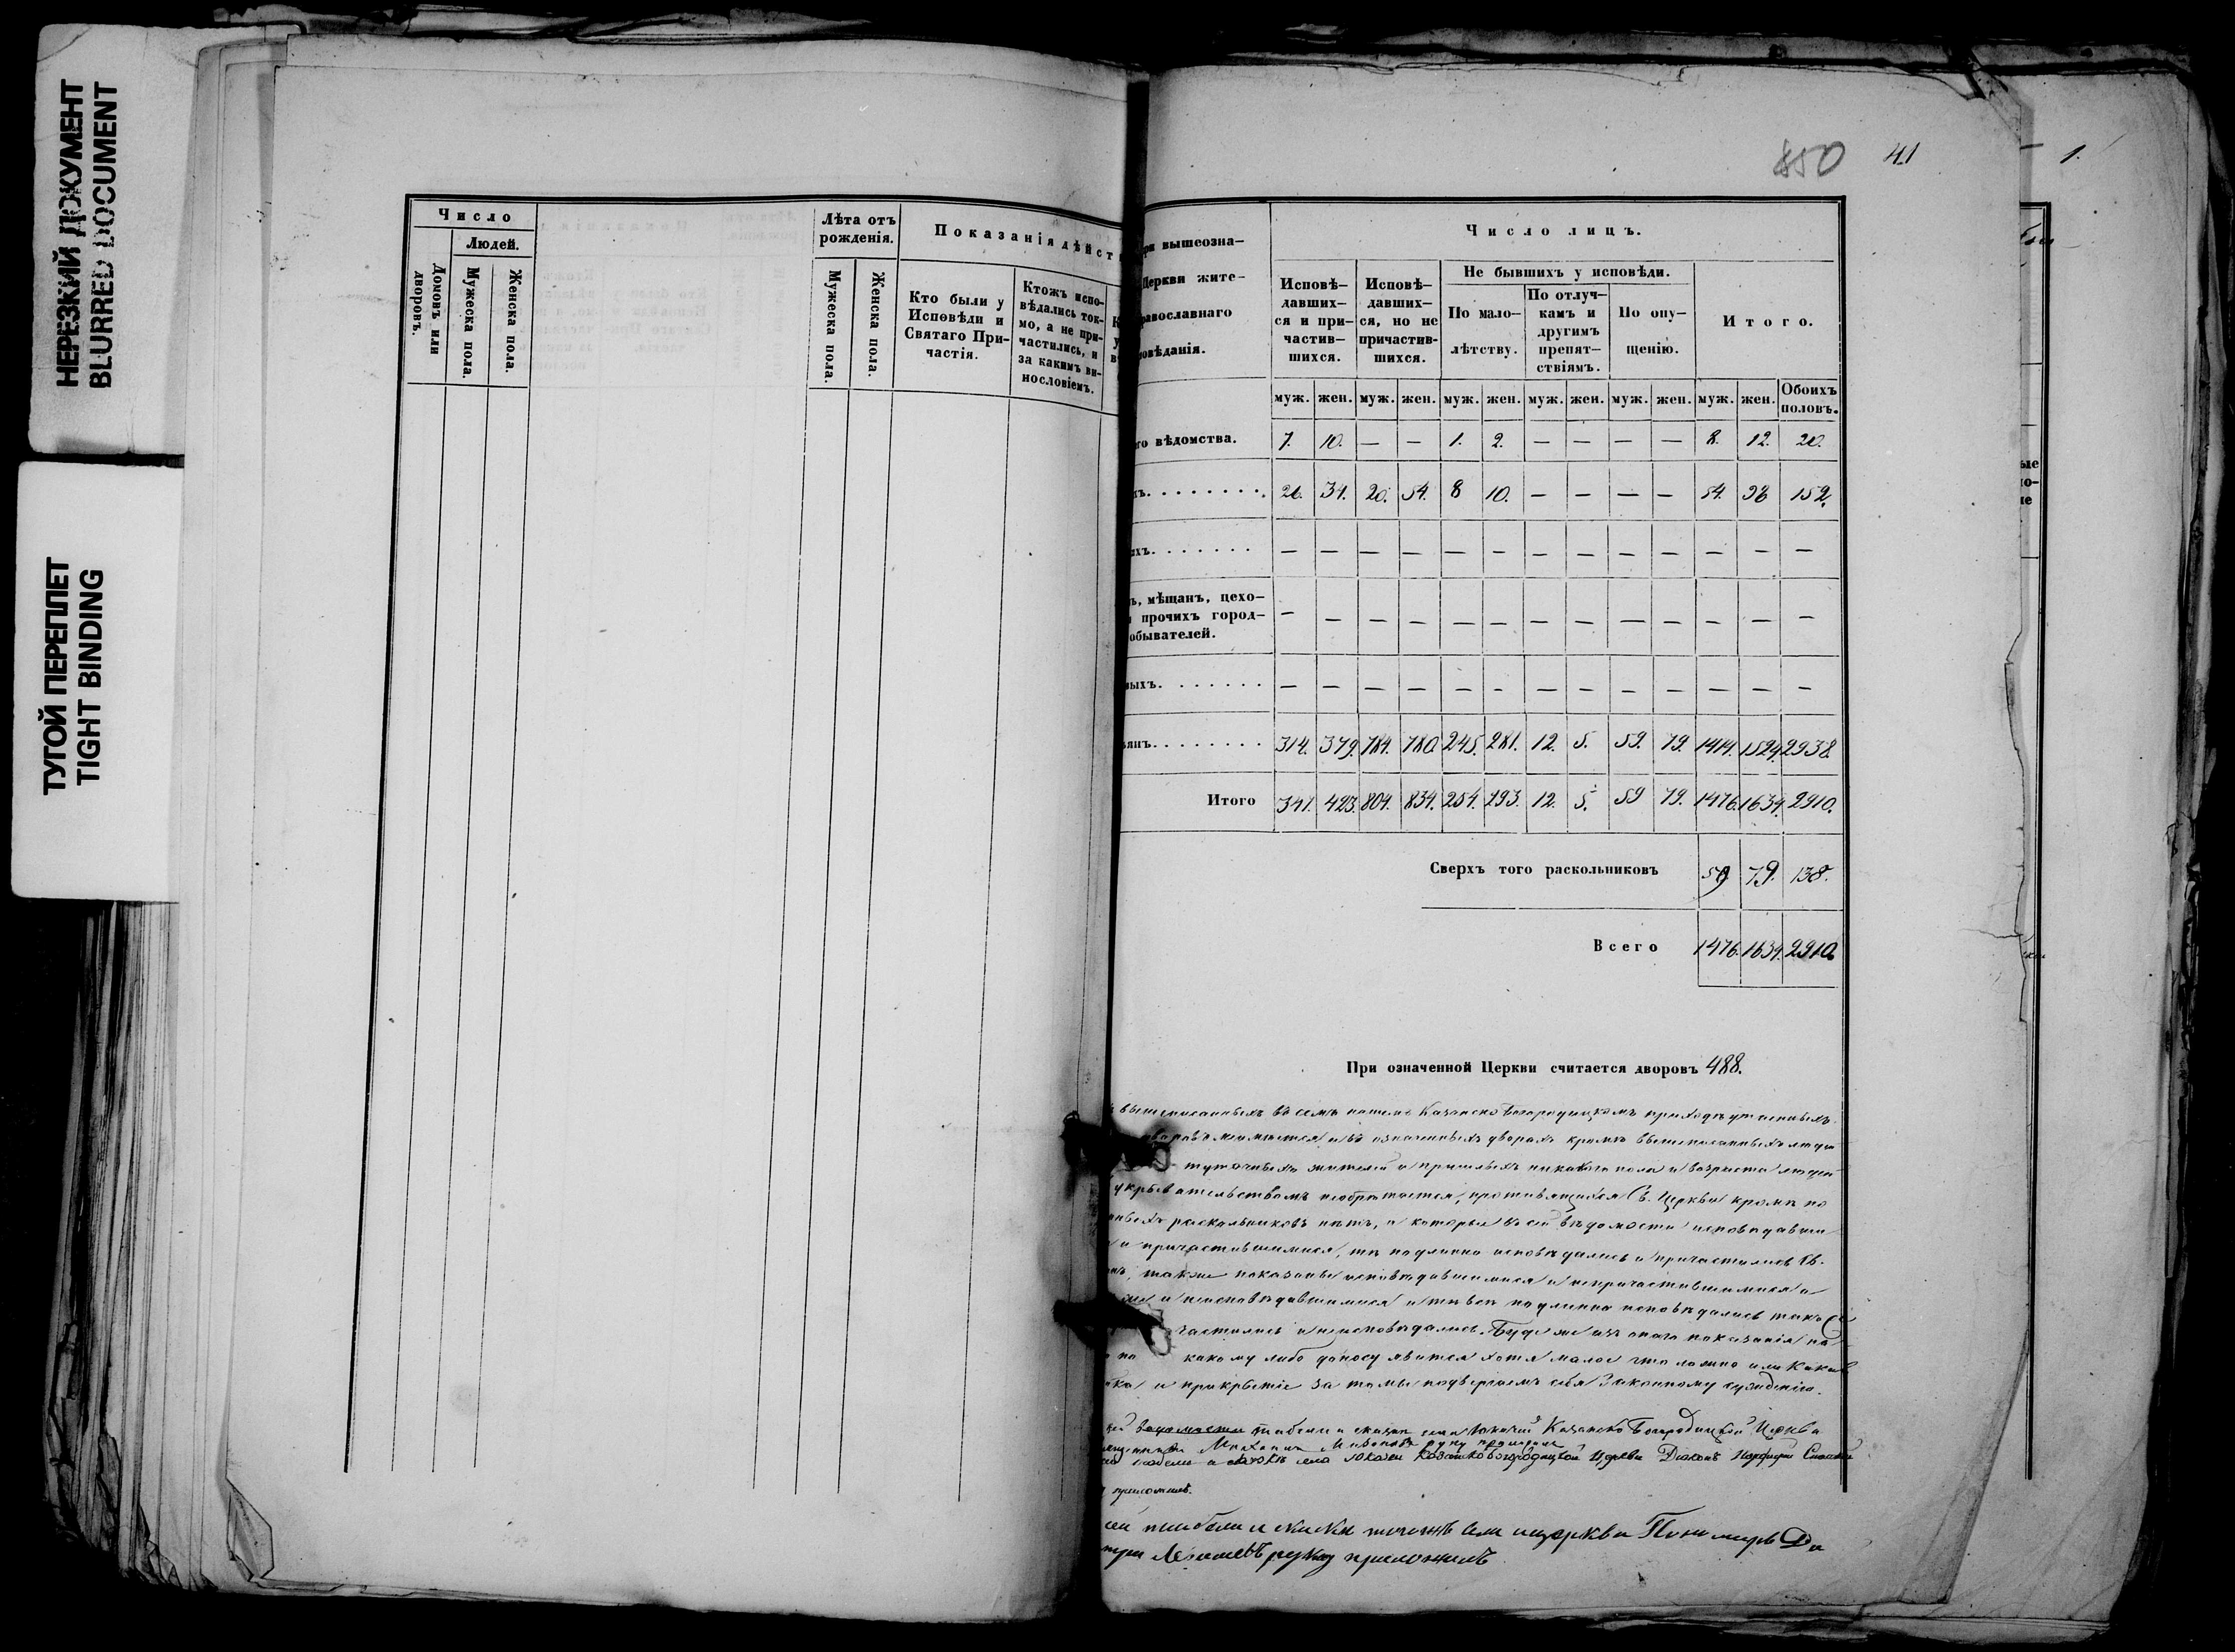 НЕРЕЗКИЙ ДОКУМЕНТ
BLURRED DOCUMENT
ТУГОЙ ПЕРЕПЛЕТ
TIGHT BINDING
Число
Людей.
Домовъ или дворовъ.
Мужеска пола.
Женска пола.
Лѣта отъ рожденія.
Мужеска пола.
Женска пола.
Показанія дѣйст
Кто были у Исповѣди и Святаго Причастія.
Ктожъ испо-
вѣдались ток-
мо, а не при-
частились, и
за какимъ ви-
нословіемъ.
850 41
1.
ри вышеозна-
Церкви жите-
равославнаго
повѣданія.
Число лицъ.
Исповѣ-
давших-
ся и при-
частив-
шихся.
Исповѣ-
давших-
ся, но не
причастив-
шихся.
Не бывшихъ у исповѣди.
По мало-
лѣтству.
По отлуч-
камъ и
другимъ
препят-
ствіямъ.
По опу-
щенію.
Итого.
муж. жен. муж. жен. муж. жен. муж. жен. муж. жен. муж. жен. Обоихъ половъ.
го вѣдомства. 7. 10. — — 1. 2. — — — — 8. 12. 20.
хъ. 34. 20. 54. 8 10. — — — — 54. 98 152.
ихъ. — — — — — — — — — — — — —
ъ, мѣщанъ, цехо-
и прочихъ город-
обывателей. — — — — — — — — — — — — —
выхъ. — — — — — — — — — — — — —
янъ. 314. 379. 784. 780. 245. 281. 12. 5. 59. 79. 1414. 1524. 2938.
Итого 341. 423. 804. 834. 254. 293. 12. 5. 59 79. 1476. 1634. 2910.
Сверхъ того раскольниковъ 59 79. 138.
Всего 1476. 1634. 2910.
При означенной Церкви считается дворовъ 488.
вышеписанныхъ въ семъ нашемъ Казанскобогородицкомъ приходѣ утаенныхъ
дворовъ неимѣется и въ означенныхъ дворахъ кромѣ вышеписанныхъ людей
жителей и пришлыхъ никакого пола и возраста людей
укрывательствомъ необрѣтается, противящихся Св. Церкви кромѣ по
раскольниковъ нѣтъ, а которые въ сей вѣдомости исповѣдавши
и причастившимися, тѣ подлинно исповѣдались и причастились Св.
также показаны исповѣдавшимися и непричастившимися и
и неисповѣдавшимися и тѣ всѣ подлинно исповѣдались
частились и неисповѣдались. Буде же изъ онаго показанія
по какому либо доносу явится хотя малое что ложно или какая
и прикрытіе за то мы подвергаемъ себя законному сужденію.
табели и сказкѣ села Казанско Богородицкой Церкви
руку приложилъ
табели и сказкѣ села Казанскобогородицкой Церкви Діаконъ
приложилъ.
табели и сказки церкви Пономарь
руку приложилъ